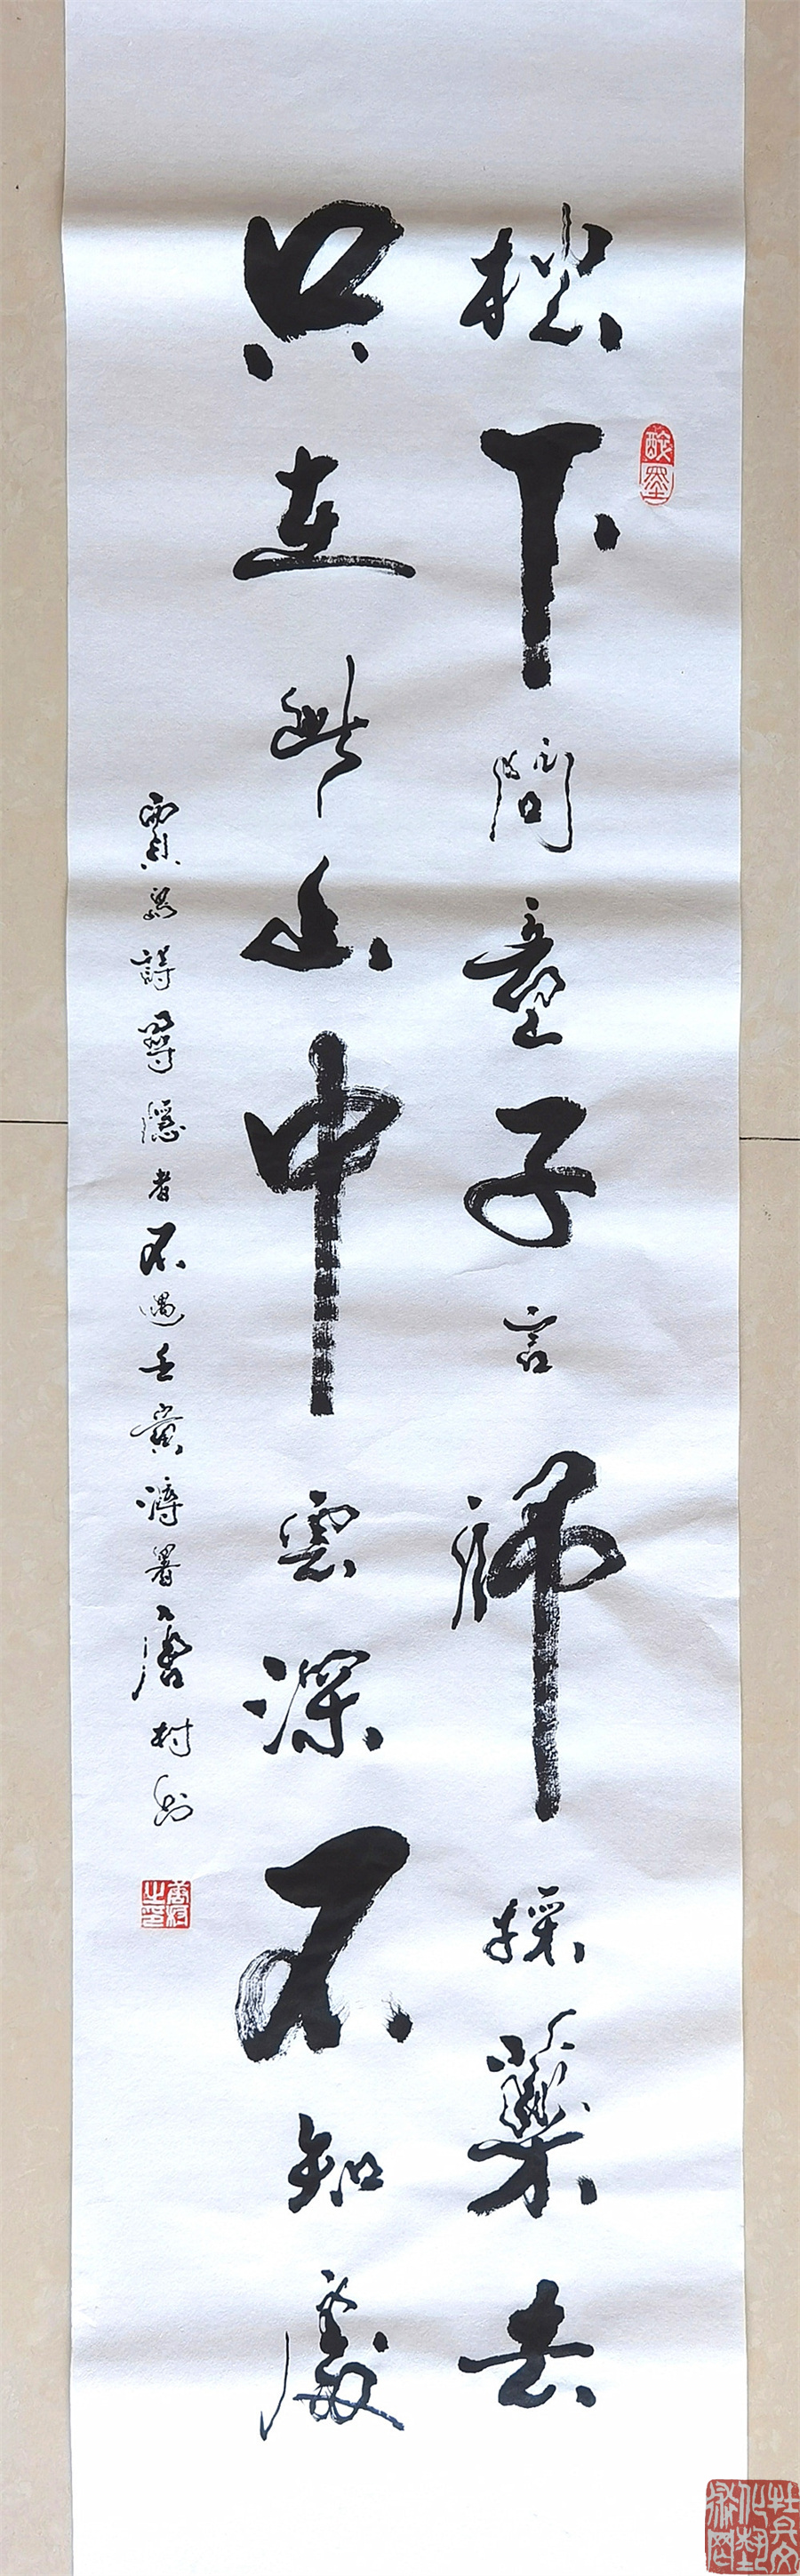 松下問童子言師採藥去
只在此山中雲深不知處
賈島詩尋隱者不遇壬寅溽暑唐村